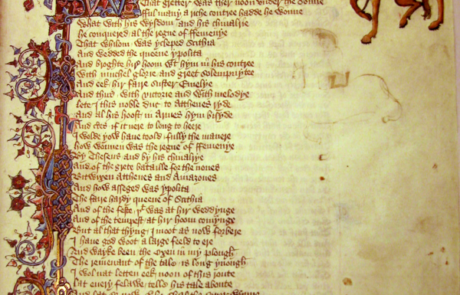 That gretter was ther noon under the sonne
ful many a riche contree hadde he wonne
What with his wysdom and his chiualrie
he conquered al the regne of ffemenye
That whilom was ycleped Scithia
And wedded the queene ypolita
And broghte hir hoom wt hym in his contree
With muchel glorie and greet solempnytee
And eek hir faire suster Emelye
And thus with victorie and with melodye
lete I this noble duc to Atthenes ryde
And al his hoost in Armes hym bisyde
And certes if it nere to long to heere
I wolde yow haue toold fully the manere
how wonnen was the regne of ffemenye
By Theseus and by his chiualrye
And of the grete bataille for the nones
Bitwixen Atthenes and Amazones
And how asseged was ypolita
The faire hardy queene of Scithia
And of the feste yt was at hir weddynge
And of the tempest at hir hoom comynge
But al that thyng I moot as now forbere
I haue god woot a large feeld to ere
And wayke been the oxen in my plough
The remenant of the tale is long ynough
I wol nat letten eek noon of this route
lat euery felawe telle his tale aboute
And lat se now